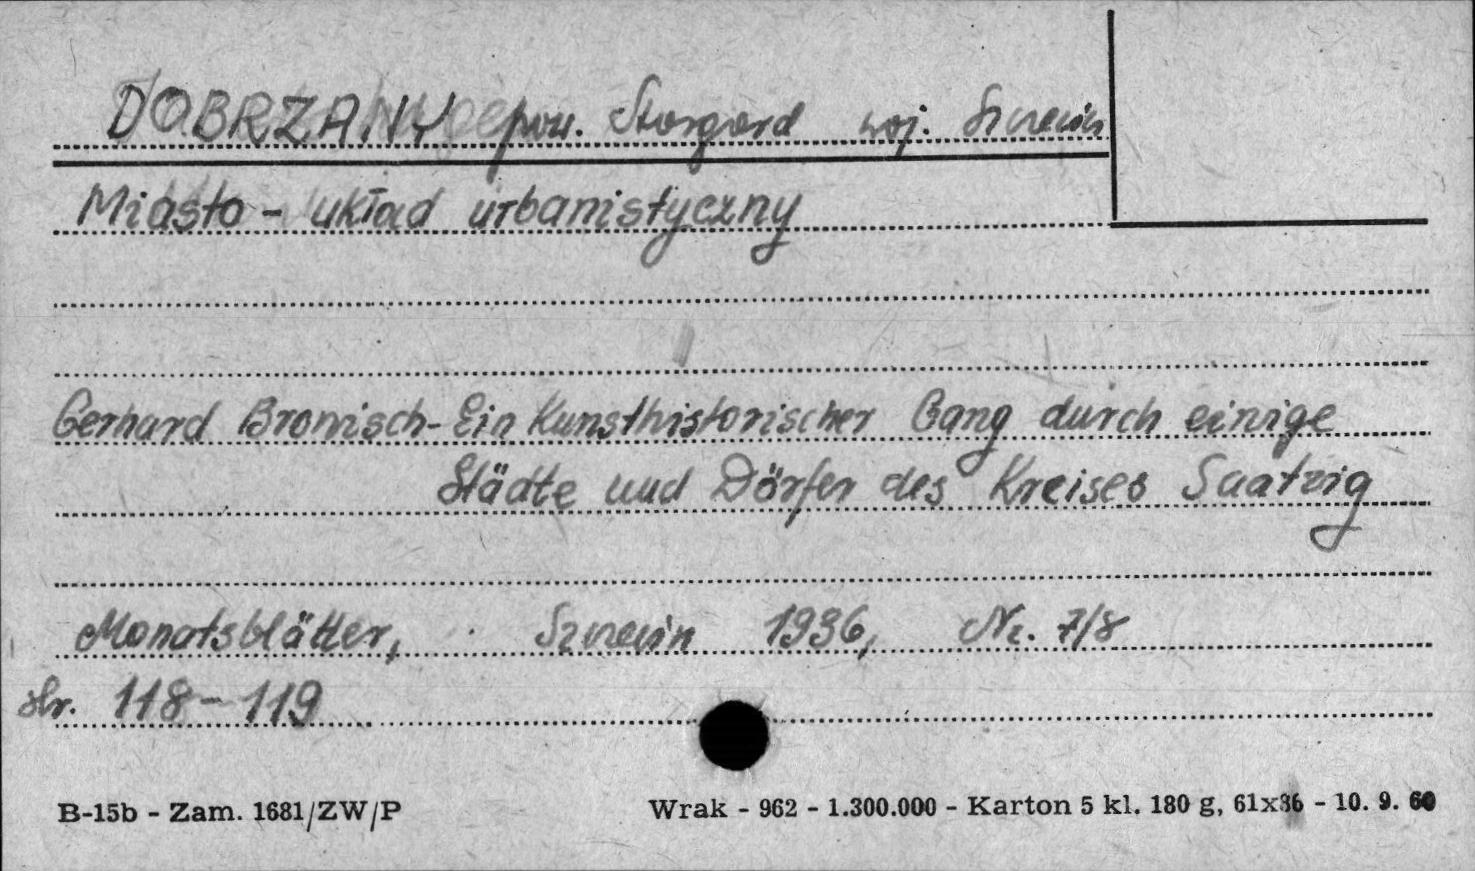 DOBRZANY pow. Stargard woj. Szczecin
Miasto - układ urbanistyczny
Gerhard Bronisch - Ein Kunsthistorischer Gang durch einige
Städte und Dörfer des Kreises Saatzig
Monatsblätter, Szczecin 1936, Nr. 7/8
str. 118-119
B-15b - Zam. 1681/ZW/P Wrak - 962 - 1.300.000 - Karton 5 kl. 180 g, 61x86 - 10. 9. 60